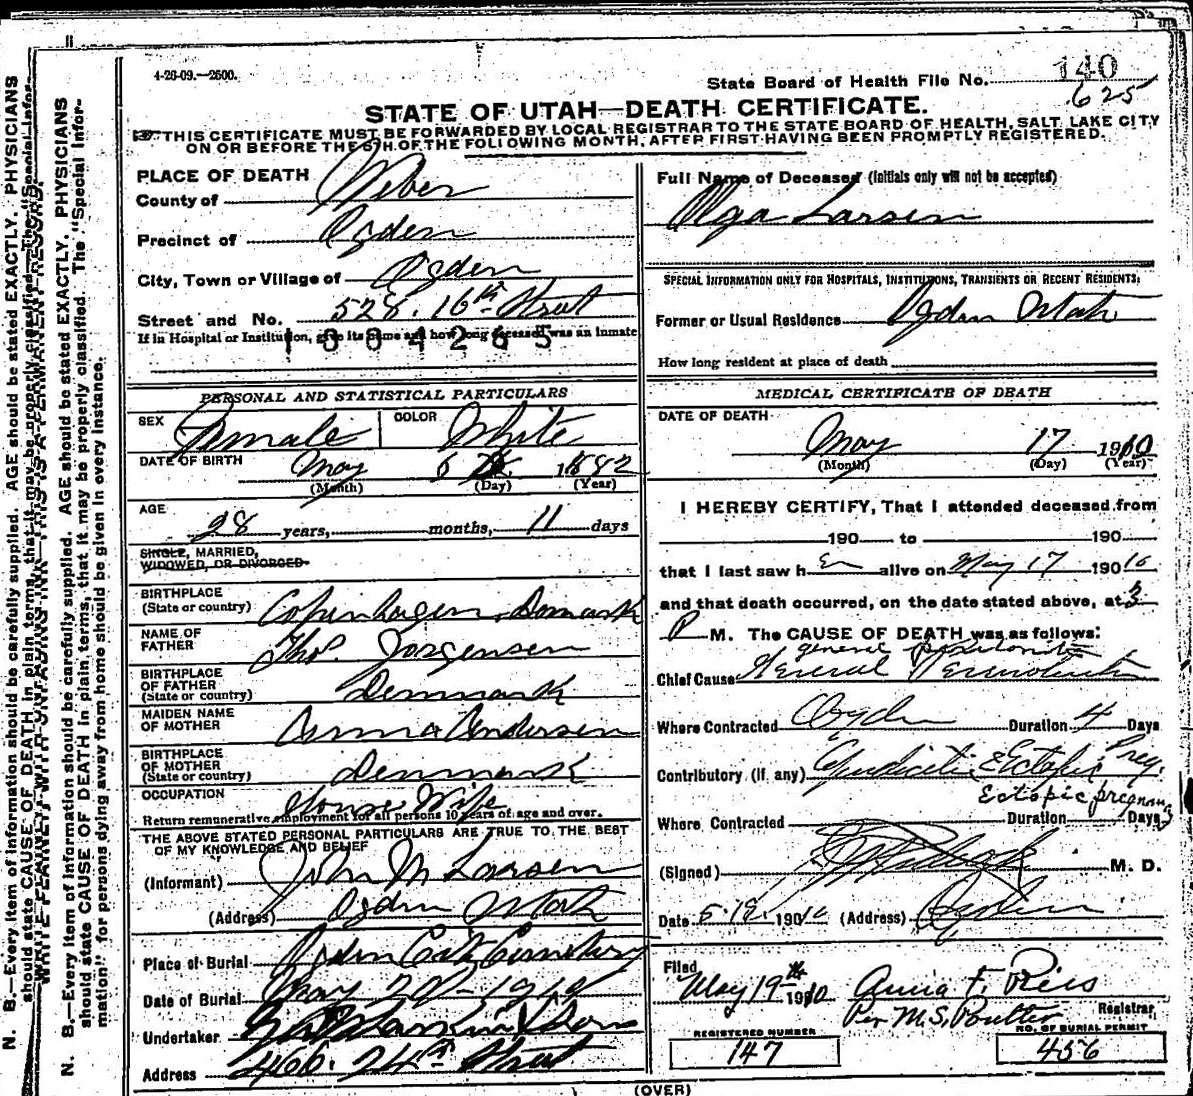 4-26-09.—2500.
State Board of Health File No. 140
625
STATE OF UTAH—DEATH CERTIFICATE.
THIS CERTIFICATE MUST BE FORWARDED BY LOCAL REGISTRAR TO THE STATE BOARD OF HEALTH, SALT LAKE CITY
ON OR BEFORE THE 5TH OF THE FOLLOWING MONTH, AFTER FIRST HAVING BEEN PROMPTLY REGISTERED.
PLACE OF DEATH
County of Weber
Precinct of Ogden
City, Town or Village of Ogden
Street and No. 528. 16th Street
If in Hospital or Institution, give its name and how long deceased was an inmate
PERSONAL AND STATISTICAL PARTICULARS
SEX Female COLOR White
DATE OF BIRTH May 6 1882
(Month) (Day) (Year)
AGE 28 years, months, 11 days
SINGLE, MARRIED,
WIDOWED, OR DIVORCED
BIRTHPLACE
(State or country) Copenhagen, Denmark
NAME OF
FATHER Thos. Jorgensen
BIRTHPLACE
OF FATHER
(State or country) Denmark
MAIDEN NAME
OF MOTHER Anna Andersen
BIRTHPLACE
OF MOTHER
(State or country) Denmark
OCCUPATION House Wife
Return remunerative employment for all persons 10 years of age and over.
THE ABOVE STATED PERSONAL PARTICULARS ARE TRUE TO THE BEST
OF MY KNOWLEDGE AND BELIEF
(Informant) John M Larsen
(Address) Ogden Utah
Place of Burial Ogden City Cemetery
Date of Burial May 20 - 1910
Undertaker Larkin & Sons
Address 466. 24th Street
Full Name of Deceased (Initials only will not be accepted)
Olga Larsen
SPECIAL INFORMATION ONLY FOR HOSPITALS, INSTITUTIONS, TRANSIENTS OR RECENT RESIDENTS.
Former or Usual Residence Ogden Utah
How long resident at place of death
MEDICAL CERTIFICATE OF DEATH
DATE OF DEATH
May 17 1910
(Month) (Day) (Year)
I HEREBY CERTIFY, That I attended deceased from
190 to 190
that I last saw her alive on May 17 1910
and that death occurred, on the date stated above, at 3
P M. The CAUSE OF DEATH was as follows:
general peritonitis
Chief Cause General Peritonitis
Where Contracted Ogden Duration 4 Days
Contributory (if any) Apendicitis, Ectopic Preg.
Ectopic pregnancy
Where Contracted Duration Days
(Signed) M. D.
Date 5-19-1910 (Address) Ogden
Filed
May 19th 1910 Anna F. Ries
Per M.S. Poulter Registrar
REGISTERED NUMBER 147
NO. OF BURIAL PERMIT 456
(OVER)
N. B.—Every item of information should be carefully supplied. AGE should be stated EXACTLY. PHYSICIANS
should state CAUSE OF DEATH in plain terms, that it may be properly classified. The "Special Infor-
mation" for persons dying away from home should be given in every instance.
WRITE PLAINLY WITH UNFADING INK—THIS IS A PERMANENT RECORD.
N. B.—Every item of information should be carefully supplied. AGE should be stated EXACTLY. PHYSICIANS
should state CAUSE OF DEATH in plain terms, that it may be properly classified. The "Special Infor-